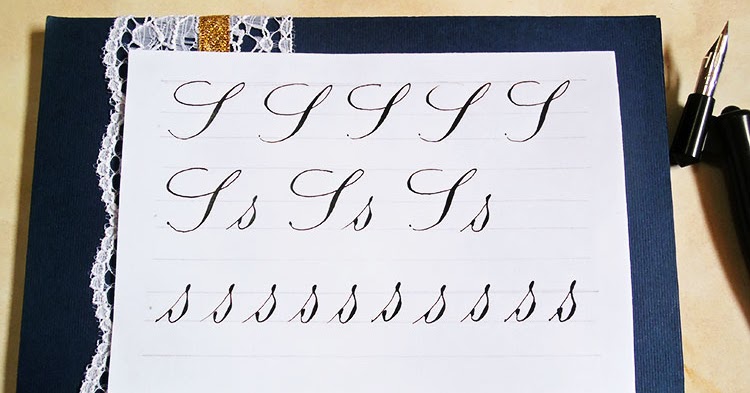 S S S S S
Ss Ss Ss
s s s s s s s s s s